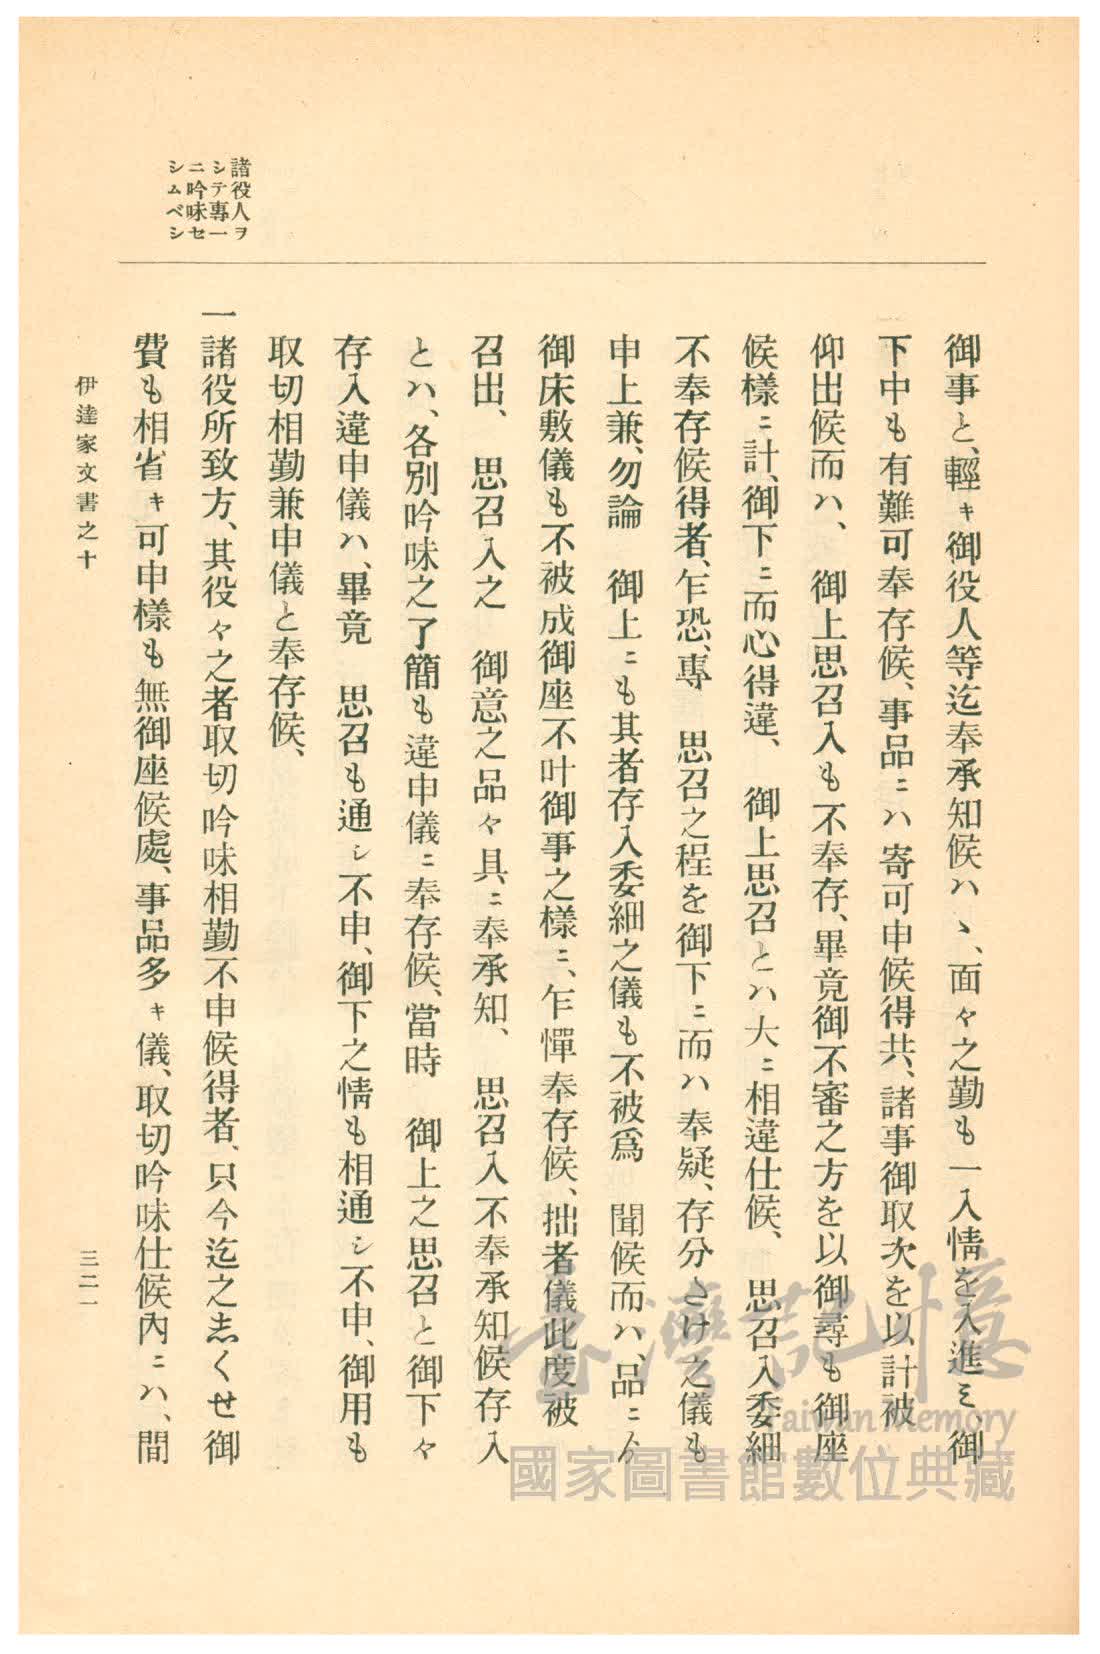 諸役人ヲ
シテ專一
ニ吟味セ
シムベシ
御事と、輕キ御役人等迄奉承知候ハヽ、面々之勤も一入情を入進ミ、御
下中も有難可奉存候、事品ニハ寄可申候得共、諸事御取次を以計被
仰出候而ハ、　御上思召入も不奉存、畢竟御不審之方を以御尋も御座
候樣ニ計、御下ニ而心得違、　御上思召とハ大ニ相違仕候、　思召入委細
不奉存候得者、乍恐、專　思召之程を御下ニ而ハ奉疑、存分さけ之儀も
申上兼、勿論　御上ニも其者存入委細之儀も不被爲　聞候而ハ、品ニゟ
御床敷儀も不被成御座不叶御事之樣ニ、乍憚奉存候、拙者儀此度被
召出、　思召入之　御意之品々具ニ奉承知、　思召入不奉承知候存入
とハ、各別吟味之了簡も違申儀ニ奉存候、當時　御上之思召と御下々
存入違申儀ハ、畢竟　思召も通シ不申、御下之情も相通シ不申、御用も
取切相勤兼申儀と奉存候、
一諸役所致方、其役々之者取切吟味相勤不申候得者、只今迄之志くせ御
費も相省キ可申樣も無御座候處、事品多キ儀、取切吟味仕候內ニハ、間
伊達家文書之十
三二一
臺灣記憶
Taiwan Memory
國家圖書館數位典藏